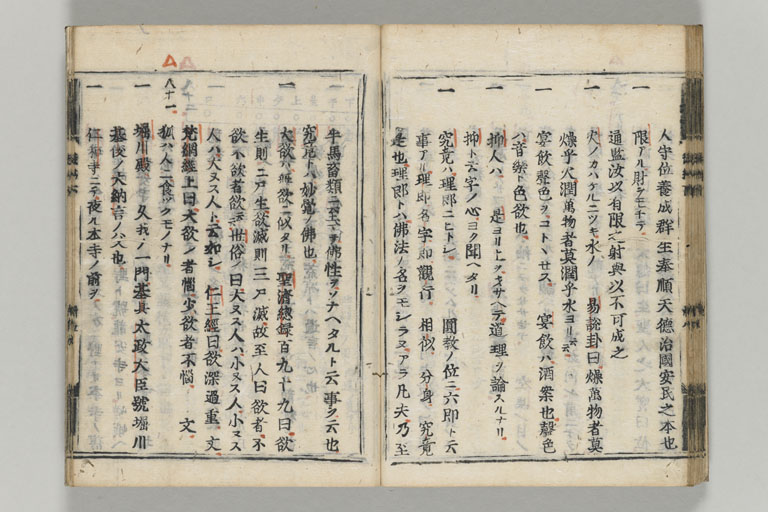 人守位養成群生奉順天德治國安民之本也
一 限アル財ヲモチテ
通監汝以有限之射與以不可成之
一 火ノカハケルニツキ水ノ 易説卦曰燥萬物者莫
燥乎火潤萬物者莫潤乎水ヨリ云云
一 宴飲聲色ヲコトヽセス 宴飲ハ酒案也聲色
ハ音樂ト色欲也
一 抑人ハ 是ヨリ上ヲキサヘテ道理ヲ論スルナリ
抑ト云字ノ心ヨク聞ヘタリ
一 究竟ハ理即ニヒトシ 圓教ノ位ニ六即ト云
事アリ理即名字即觀行 相似 分身 究竟
是也理即トハ佛法ノ名ヲモシラヌアラ凡夫乃至
牛馬畜類ニ至マテ佛性ヲソナヘタルト云事ヲ云也
究竟トハ妙覺ノ佛也
一 大欲ハ無欲ニ似タリ 聖濟総録百九十九曰欲
生則ニ尸生欲滅則三尸滅故至人曰欲者不
欲不欲者飲云 世俗ノ曰人ヌス人ハ小ヌス人小ヌス
人ハ大ヌス人ト云如シ 仁王經曰欲深過重 文
梵網經上曰大欲ノ者惱少欲者不惱 文
八十一
一 狐ハ人ニ食ツクモノナリ
一 堀川殿 久我ノ一門基具太政大臣號堀川
基俊ノ大納言ノハス也
一 仁和寺ニテ夜ル本寺ノ前ヲ